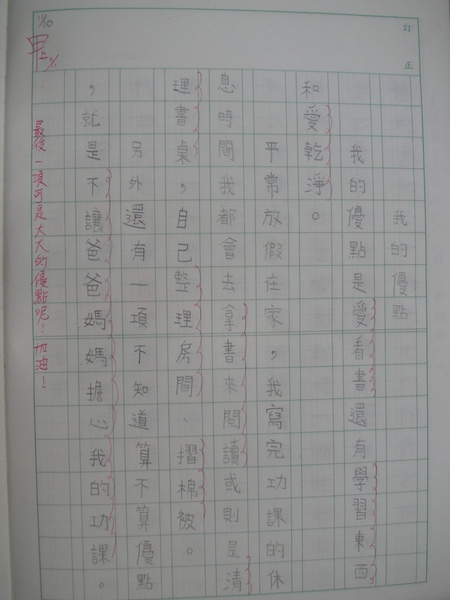 訂正
我的優點
我的優點是愛看書還有學習東西
和愛乾淨。
平常放假在家,我寫完功課的休
息時間我都會去拿書來閱讀或則是清
理書桌,自己整理房間、摺棉被。
另外還有一項不知道算不算優點
,就是不讓爸爸媽媽擔心我的功課。
最後一項可是大大的優點呢!加油!